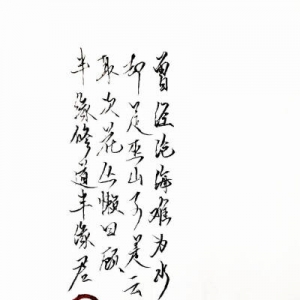 曾经沧海难为水
却是巫山不是云
取次花丛懒回顾
半缘修道半缘君